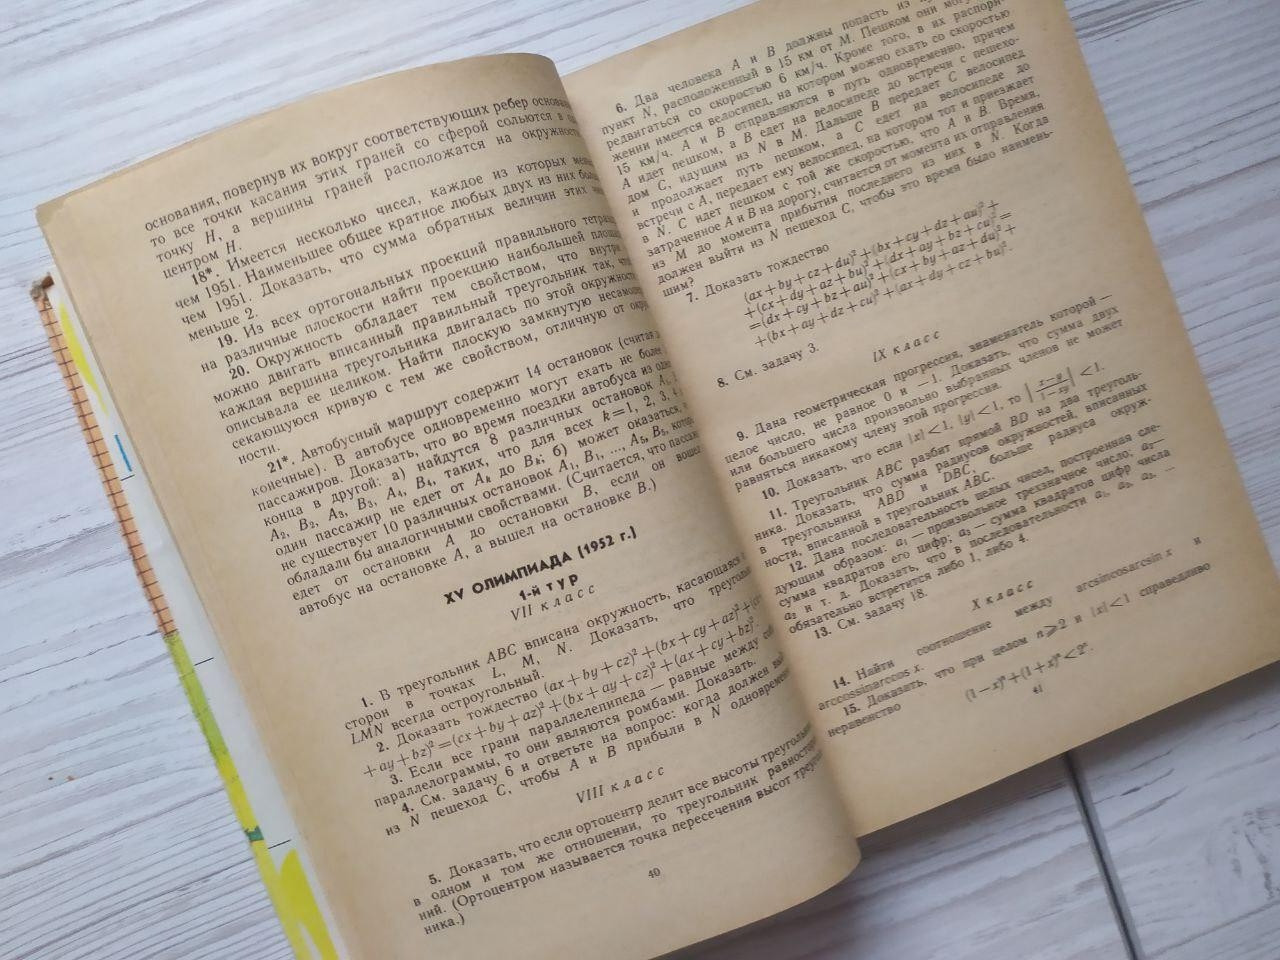 основания, повернув их вокруг соответствующих ребер основа
то все точки касания этих граней со сферой сольются в
точку H, а вершины граней расположатся на окружности
центром H.
18*. Имеется несколько чисел, каждое из которых
чем 1951. Наименьшее общее кратное любых двух из них
чем 1951. Доказать, что сумма обратных величин этих
меньше 2.
19. Из всех ортогональных проекций правильного тетра
на различные плоскости найти проекцию наибольшей
20. Окружность обладает тем свойством, что внутри
можно двигать вписанный правильный треугольник так,
каждая вершина треугольника двигалась по этой окружности
описывала ее целиком. Найти плоскую замкнутую несамо
секающуюся кривую с тем же свойством, отличную от
ности.
21*. Автобусный маршрут содержит 14 остановок (считая
конечные). В автобусе одновременно могут ехать не более
пассажиров. Доказать, что во время поездки автобуса из
конца в другой: а) найдутся 8 различных остановок A₁,
A₂, B₂, A₃, B₃, A₄, B₄, таких, что для всех k=1, 2, 3,
один пассажир не едет от Aₖ до Bₖ; б) может оказаться,
не существует 10 различных остановок A₁, B₁, ..., A₅, B₅,
обладали бы аналогичными свойствами. (Считается, что
едет от остановки A до остановки B, если он вошел
автобус на остановке A, а вышел на остановке B.)
XV ОЛИМПИАДА (1952 г.)
1-й тур
VII класс
1. В треугольник ABC вписана окружность, касающаяся
сторон в точках L, M, N. Доказать, что
LMN всегда остроугольный.
2. Доказать тождество (ax+by+cz)²+(bx+cy+az)²+
+ay+bz)²=(cx+by+az)²+(bx+ay+cz)²+(ax+cy+bz)².
3. Если все грани параллелепипеда — равные между
параллелограммы, то они являются ромбами. Доказать.
4. См. задачу 6 и ответьте на вопрос: когда должен
из N пешеход C, чтобы A и B прибыли в N
VIII класс
5. Доказать, что если ортоцентр делит все высоты
в одном и том же отношении, то треугольник
ний. (Ортоцентром называется точка пересечения высот
ника.)
40
6. Два человека A и B должны попасть из
пункт N, расположенный в 15 км от M. Пешком они
редвигаться со скоростью 6 км/ч. Кроме того, в их распоря-
жении имеется велосипед, на котором можно ехать со скоростью
15 км/ч. A и B отправляются в путь одновременно, причем
A идет пешком, а B едет на велосипеде до встречи с пешехо-
дом C, идущим из N в M. Дальше B передает C велосипед
и продолжает путь пешком, а C едет на велосипеде до
встречи с A, передает ему велосипед, на котором тот и приезжает
в N. C идет пешком с той же скоростью, что A и B. Время,
затраченное A и B на дорогу, считается от момента их отправления
из M до момента прибытия последнего из них в N. Когда
должен выйти из N пешеход C, чтобы это время было наимень-
шим?
7. Доказать тождество
(ax+by+cz+du)²+(bx+cy+dz+au)²+
+(cx+dy+az+bu)²+(dx+ay+bz+cu)²=
=(dx+cy+bz+au)²+(cx+by+az+du)²+
+(bx+ay+dz+cu)²+(ax+dy+cz+bu)².
8. См. задачу 3.
IX класс
9. Дана геометрическая прогрессия, знаменатель которой —
целое число, не равное 0 и −1. Доказать, что сумма двух
или большего числа произвольно выбранных членов не может
равняться никакому члену этой прогрессии.
10. Доказать, что если |x|<1, |y|<1, то |(x−y)/(1−xy)|<1.
11. Треугольник ABC разбит прямой BD на два треуголь-
ника. Доказать, что сумма радиусов окружностей, вписанных
в треугольники ABD и DBC, больше радиуса окруж-
ности, вписанной в треугольник ABC.
12. Дана последовательность целых чисел, построенная сле-
дующим образом: a₁ — произвольное трехзначное число; a₂—
сумма квадратов его цифр; a₃ — сумма квадратов цифр числа
a₂ и т. д. Доказать, что в последовательности a₁, a₂, a₃, ...
обязательно встретится либо 1, либо 4.
13. См. задачу 18.
X класс
14. Найти соотношение между arcsincosarcsin x и
arccossinarccos x.
15. Доказать, что при целом n⩾2 и |x|<1 справедливо
неравенство
(1−x)ⁿ+(1+x)ⁿ<2ⁿ.
41